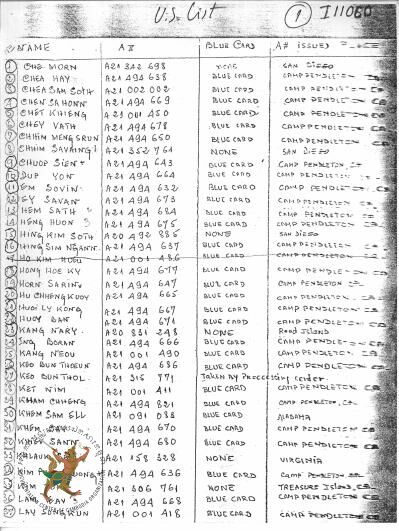 U.S. List ① I11060
NAME A# BLUE CARD A# ISSUED
① CHE MORN A21 342 698 NONE SAN DIEGO
② CHEA HAY A21 494 638 BLUE CARD CAMP PENDLETON
③ CHEA SAM SOTH A21 002 002 BLUE CARD CAMP PENDLETON
④ CHEN SA HONN A21 494 669 BLUE CARD CAMP PENDLETON
CHET KHIENG A21 001 450 BLUE CARD CAMP PENDLETON
CHEY VATH A21 494 678 BLUE CARD CAMP PENDLETON
CHHIM MENG SRUN A21 494 650 BLUE CARD CAMP PENDLETON
CHHIM A21 352 761 NONE SAN DIEGO
CHUOP SIEN A21 494 643 BLUE CARD CAMP PENDLETON
DUP YON A21 494 664 BLUE CARD CAMP PENDLETON
EM SOVIN A21 494 632 BLUE CARD CAMP PENDLETON
SAVAN A21 494 673 BLUE CARD CAMP PENDLETON
HEM SATH A21 494 684 BLUE CARD CAMP PENDLETON
HENG HUON A21 494 675 BLUE CARD CAMP PENDLETON
HING KIM SOTH A20 492 885 NONE SAN DIEGO
HING SIM NGANN A21 494 637 BLUE CARD CAMP PENDLETON
HO KIM A21 001 486 BLUE CARD CAMP PENDLETON
HONG HOE KY A21 494 677 BLUE CARD CAMP PENDLETON
HORN SARIN A21 494 647 BLUE CARD CAMP PENDLETON
HU CHHENG KUOY A21 494 665 BLUE CARD CAMP PENDLETON
HUOI LY KONG A21 494 667 BLUE CARD CAMP PENDLETON
HUOY BAN A21 494 671 BLUE CARD CAMP PENDLETON
KANG NARY A20 831 248 NONE ISLAND
BORAN A21 494 666 BLUE CARD CAMP PENDLETON
KANG NEOU A21 001 490 BLUE CARD CAMP PENDLETON
KEO BUN THOEUN A21 494 686 BLUE CARD CAMP PENDLETON
KEO BUN THOL A21 316 771 Taken by Processing center
KET NIM A21 001 411 BLUE CARD CAMP PENDLETON
KHAM CHHENG A21 494 821 BLUE CARD CAMP PENDLETON
KHEM SAM ELL A21 091 088 BLUE CARD ALABAMA
KHEM A21 494 670 BLUE CARD CAMP PENDLETON
SANN A21 494 680 BLUE CARD CAMP PENDLETON
A21 158 328 NONE VIRGINIA
KIM A21 494 636 BLUE CARD CAMP PENDLETON
A21 306 761 NONE TREASURE ISLAND
A21 494 668 BLUE CARD CAMP PENDLETON
LAY SONG KUN A21 001 418 BLUE CARD CAMP PENDLETON